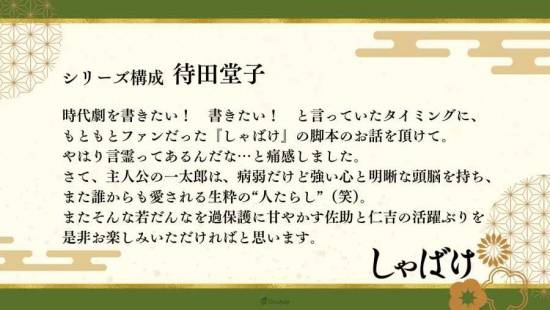 シリーズ構成 待田堂子
時代劇を書きたい！ 書きたい！ と言っていたタイミングに、
もともとファンだった『しゃばけ』の脚本のお話を頂けて。
やはり言霊ってあるんだな…と痛感しました。
さて、主人公の一太郎は、病弱だけど強い心と明晰な頭脳を持ち、
また誰からも愛される生粋の“人たらし”（笑）。
またそんな若だんなを過保護に甘やかす佐助と仁吉の活躍ぶりを
是非お楽しみいただければと思います。
しゃばけ